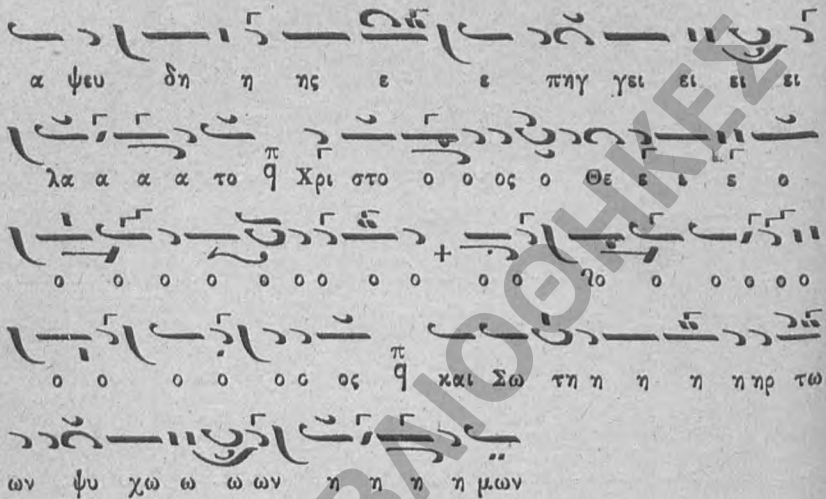 α ψευ δη η ης ε ε πηγ γει ει ει ει
λα α α α το π q Χρι στο ο ο ος ο Θε ε ε ε ο
ο ο ο ο ο ο ο ο ο ο ο λο ο ο ο ο ο
ο ο ο ο ο ο ος π q και Σω τη η η η η ηρ τω
ων ψυ χω ω ω ων η η η η μων
ΒΛΙΟΘΗΚΕΣ